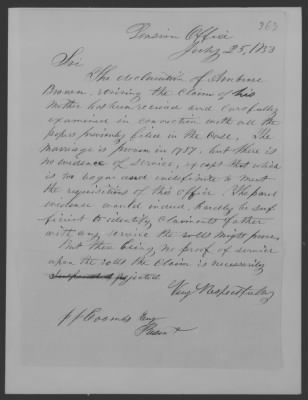 363
Pension Office
July 25, 1853
Sir
The declaration of Ambrose
Brown, reviving the claim of his
Mother has been received and carefully
examined in connection with all the
papers previously filed in the case. The
marriage is proven in 1787, but there is
no evidence of service, except that which
is so vague and indefinite to meet
the requisitions of this Office. The parol
evidence would indeed, hardly be suf
ficient to identify claimants father
with any service the rolls might prove,
But there being no proof of service
upon the rolls the claim is necessarily
rejected.
Very Respectfully
J J Coombs Esq
Present